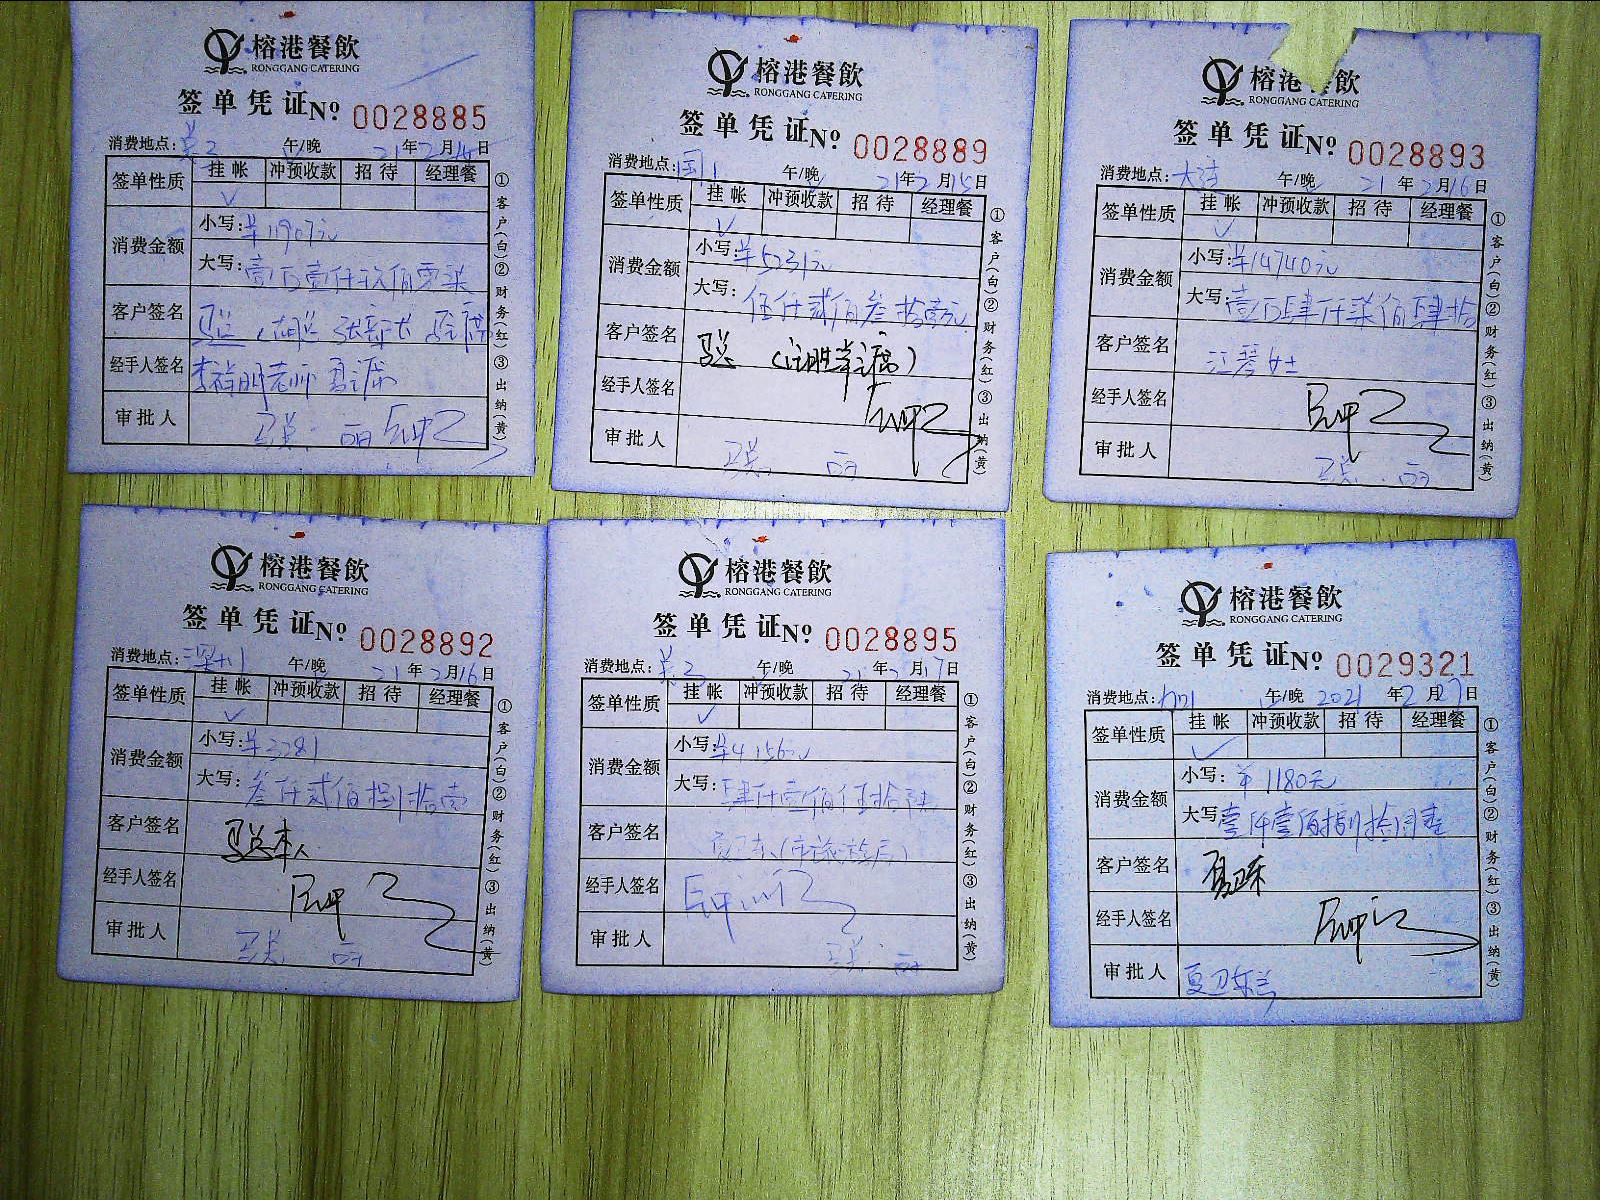 榕港餐飲
RONGGANG CATERING
签单凭证 № 0028885
消费地点: 午/晚 21年2月14日
签单性质 挂帐 冲预收款 招待 经理餐
√
消费金额 小写:¥11907元
大写:壹万壹仟玖佰零柒
客户签名
经手人签名
审批人
①客户(白)②财务(红)③出纳(黄)
榕港餐飲
RONGGANG CATERING
签单凭证 № 0028889
消费地点: 午/晚 21年2月15日
签单性质 挂帐 冲预收款 招待 经理餐
√
消费金额 小写:¥5231元
大写:伍仟贰佰叁拾壹元
客户签名
经手人签名
审批人
①客户(白)②财务(红)③出纳(黄)
榕港餐飲
RONGGANG CATERING
签单凭证 № 0028893
消费地点: 午/晚 21年2月16日
签单性质 挂帐 冲预收款 招待 经理餐
√
消费金额 小写:¥14740元
大写:壹万肆仟柒佰肆拾
客户签名 江琴女士
经手人签名
审批人
①客户(白)②财务(红)③出纳(黄)
榕港餐飲
RONGGANG CATERING
签单凭证 № 0028892
消费地点:深圳 午/晚 21年2月16日
签单性质 挂帐 冲预收款 招待 经理餐
√
消费金额 小写:¥3281
大写:叁仟贰佰捌拾壹
客户签名 本人
经手人签名
审批人
①客户(白)②财务(红)③出纳(黄)
榕港餐飲
RONGGANG CATERING
签单凭证 № 0028895
消费地点: 午/晚 21年2月17日
签单性质 挂帐 冲预收款 招待 经理餐
√
消费金额 小写:¥4156元
大写:肆仟壹佰伍拾陆
客户签名 (市旅游局)
经手人签名
审批人
①客户(白)②财务(红)③出纳(黄)
榕港餐飲
RONGGANG CATERING
签单凭证 № 0029321
消费地点: 午/晚 2021年2月27日
签单性质 挂帐 冲预收款 招待 经理餐
√
消费金额 小写:¥1180元
大写 壹仟壹佰捌拾圆整
客户签名
经手人签名
审批人
①客户(白)②财务(红)③出纳(黄)